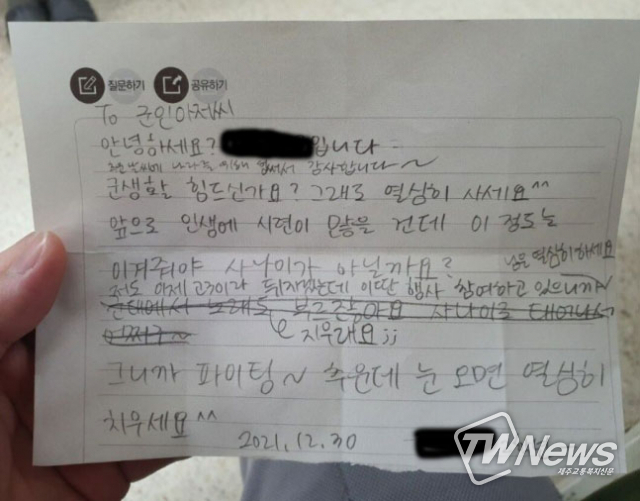 질문하기 공유하기
To 군인아저씨
안녕하세요? 입니다
추운 날씨에 나라를 위해 힘써서 감사합니다~
군생활 힘드신가요? 그래도 열심히 사세요^^
앞으로 인생에 시련이 많을 건데 이 정도는
이겨줘야 사나이가 아닐까요?
저도 이제 고3이라 뒤지겠는데 이딴 행사 참여하고 있으니까~
님은 열심히 하세요
군대에서 노래도 부르잖아요 사나이로 태어나서
어쩌구~
지우래요;;
그니까 파이팅~ 추운데 눈 오면 열심히
치우세요^^
2021.12.30
TWNews
제주교통복지신문